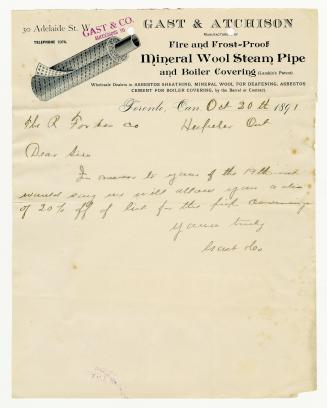 30 Adelaide St. W.
GAST & CO.
SUCCESSORS TO
TELEPHONE 1376.
GAST & ATCHISON
MANUFACTURERS OF
Fire and Frost-Proof
Mineral Wool Steam Pipe
and Boiler Covering (Lambkin's Patent)
Wholesale Dealers in ASBESTOS SHEATHING, MINERAL WOOL FOR DEAFENING, ASBESTOS
CEMENT FOR BOILER COVERING, by the Barrel or Contract.
Toronto, Can. Oct 20th 1891
The R Forbes Co Hespeler Ont
Dear Sirs
In answer to yours of the 19th inst
would say we will allow you a dis
of 20% off of list for the pipe covering
Yours truly
Gast & Co